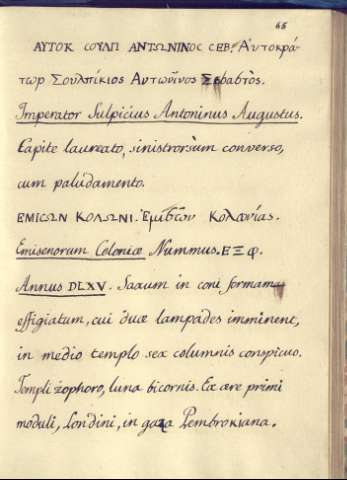 65
ΑΥΤΟΚ ΣΟΥΛΠ ΑΝΤΩΝΙΝΟC CΕΒ. Αὐτοκρά-
τωρ Σουλπίκιος Αντωνῖνος Σεβαστὸς.
Imperator Sulpicius Antoninus Augustus.
Capite laureato, sinistrorsùm converso,
cum paludamento.
ΕΜΙCΩΝ ΚΟΛΩΝΙ. Ἐμισῶν Κολωνίας.
Emisenorum Coloniæ Nummus. ΕΞΦ.
Annus DLXV. Saxum in coni formam
effigiatum, cui duæ lampades imminent,
in medio templo sex columnis conspicuo.
Templi zophoro, luna bicornis. Ex ære primi
moduli, Londini, in gaza Pembrokiana.